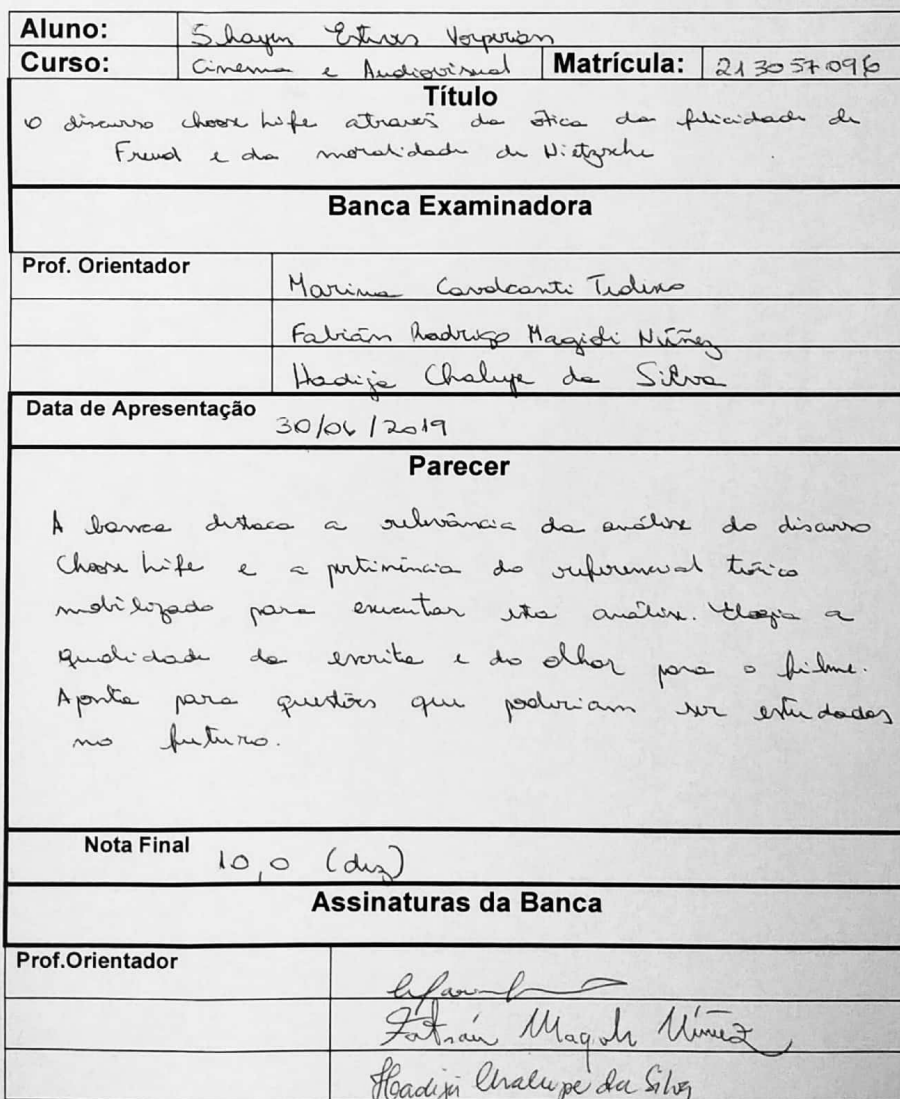 Aluno: Shayen Esteves Vorperian
Curso: Cinema e Audiovisual Matrícula: 213057096
Título
O discurso choose life através da ótica da felicidade de
Freud e da moralidade de Nietzsche
Banca Examinadora
Prof. Orientador Marina Cavalcanti Tedesco
Fabián Rodrigo Magioli Núñez
Hadija Chalupe da Silva
Data de Apresentação 30/06/2019
Parecer
A banca destaca a relevância da análise do discurso
Choose Life e a pertinência do referencial teórico
mobilizado para executar esta análise. Elogia a
qualidade da escrita e do olhar para o filme.
Aponta para questões que poderiam ser estudadas
no futuro.
Nota Final 10,0 (dez)
Assinaturas da Banca
Prof.Orientador
Fabián Magioli Núñez
Hadija Chalupe da Silva